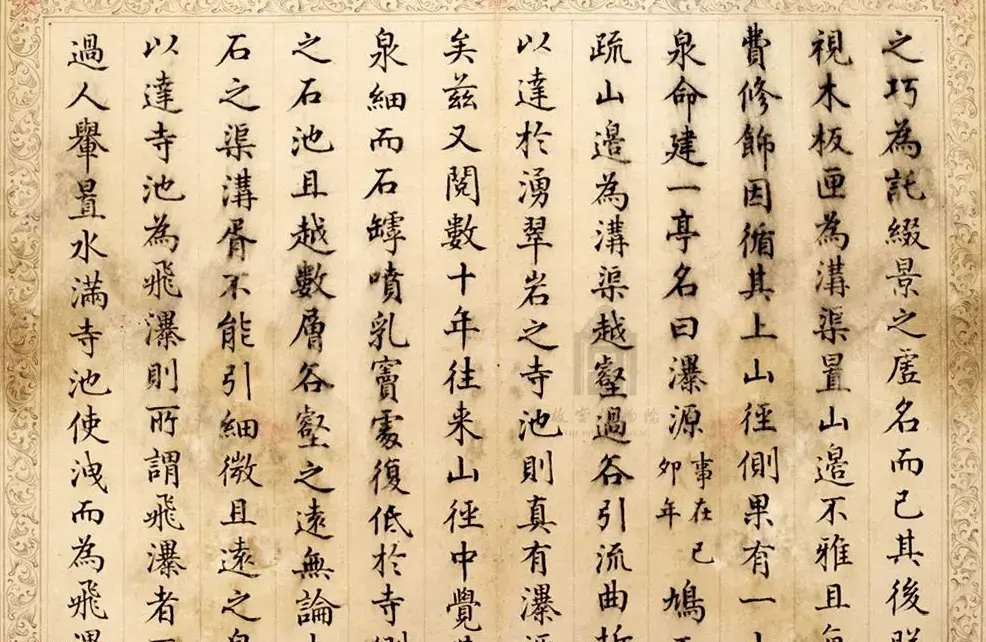 之巧為託綴景之虛名而已其後
視木板匣為溝渠置山邉不雅且無
費修飾因循其上山徑側果有一
泉命建一亭名曰瀑源事在己卯年鳩
疏山邉為溝渠越壑過谷引流曲折
以達於湧翠岩之寺池則真有瀑源
矣茲又閱數十年往来山徑中覺其
泉細而石罅噴乳竇處復低於寺側
之石池且越數層谷壑之遠無論
石之渠溝胥不能引細微且遠之泉
以達寺池為飛瀑則所謂飛瀑者
過人轝置水滿寺池使洩而為飛瀑